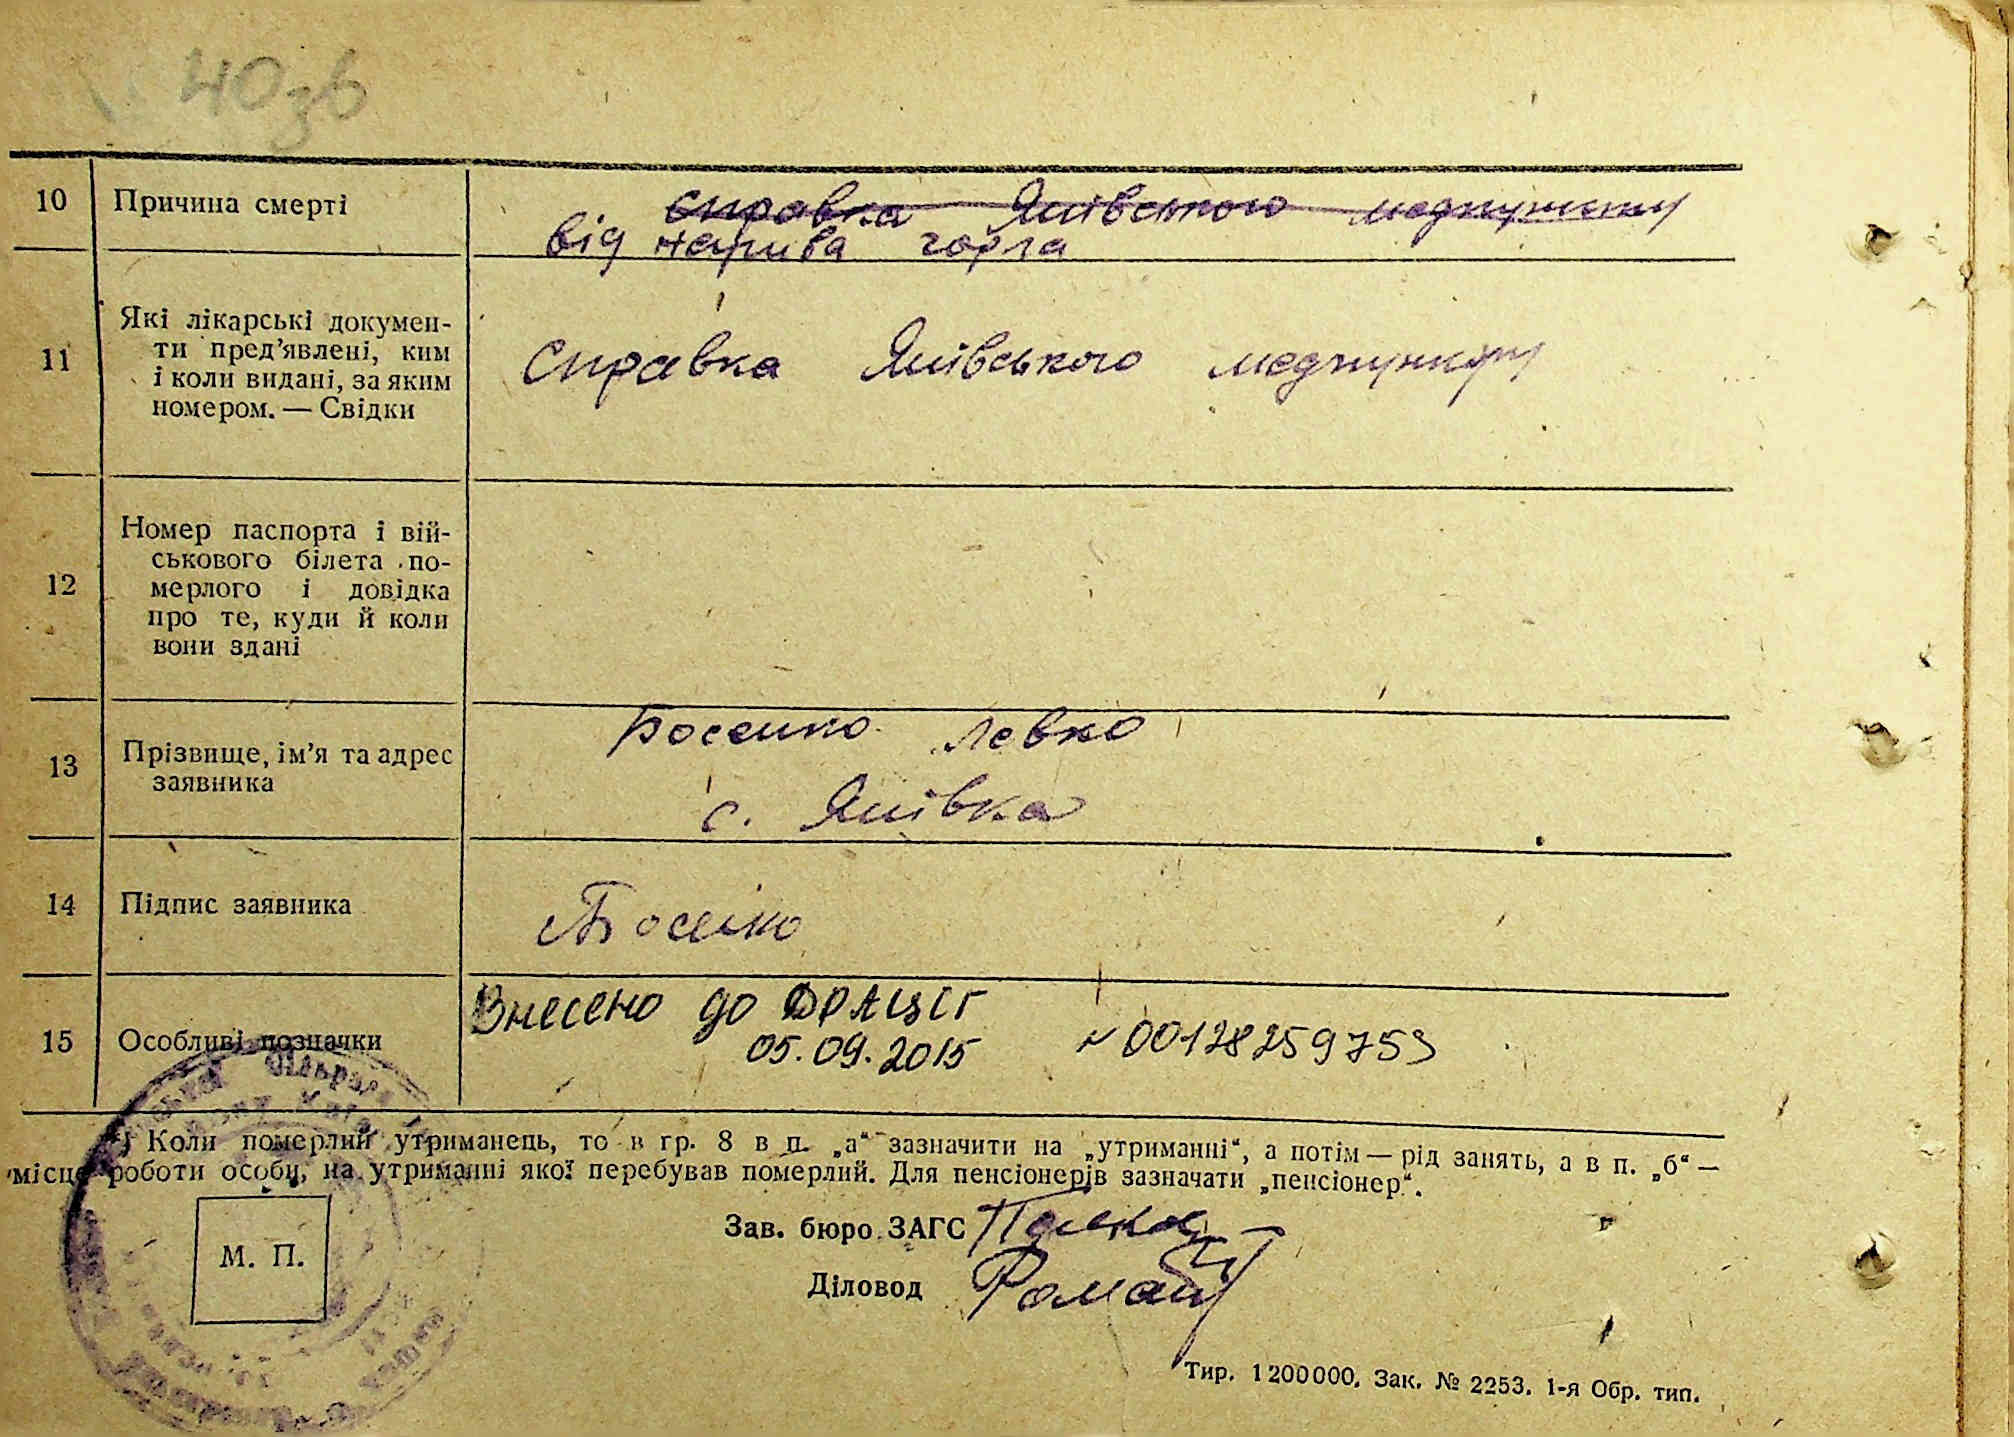 40зв
10 Причина смерті
справка Янівського медпункту
від нарива горла
11 Які лікарські докумен-
ти пред’явлені, ким
і коли видані, за яким
номером. — Свідки
Справка Янівського медпункту
12 Номер паспорта і вій-
ськового білета по-
мерлого і довідка
про те, куди й коли
вони здані
13 Прізвище, ім’я та адрес
заявника
Босенко Левко
с. Янівка
14 Підпис заявника
Босенко
15 Особливі позначки
Внесено до ДРАЦСГ
05.09.2015 N 00128259753
*) Коли померлий утриманець, то в гр. 8 в п. „а“ зазначити на „утриманні“, а потім — рід занять, а в п. „б“ —
місце роботи особи, на утриманні якої перебував померлий. Для пенсіонерів зазначати „пенсіонер“.
М. П.
Зав. бюро ЗАГС
Діловод
Тир. 1200000. Зак. № 2253. 1-я Обр. тип.